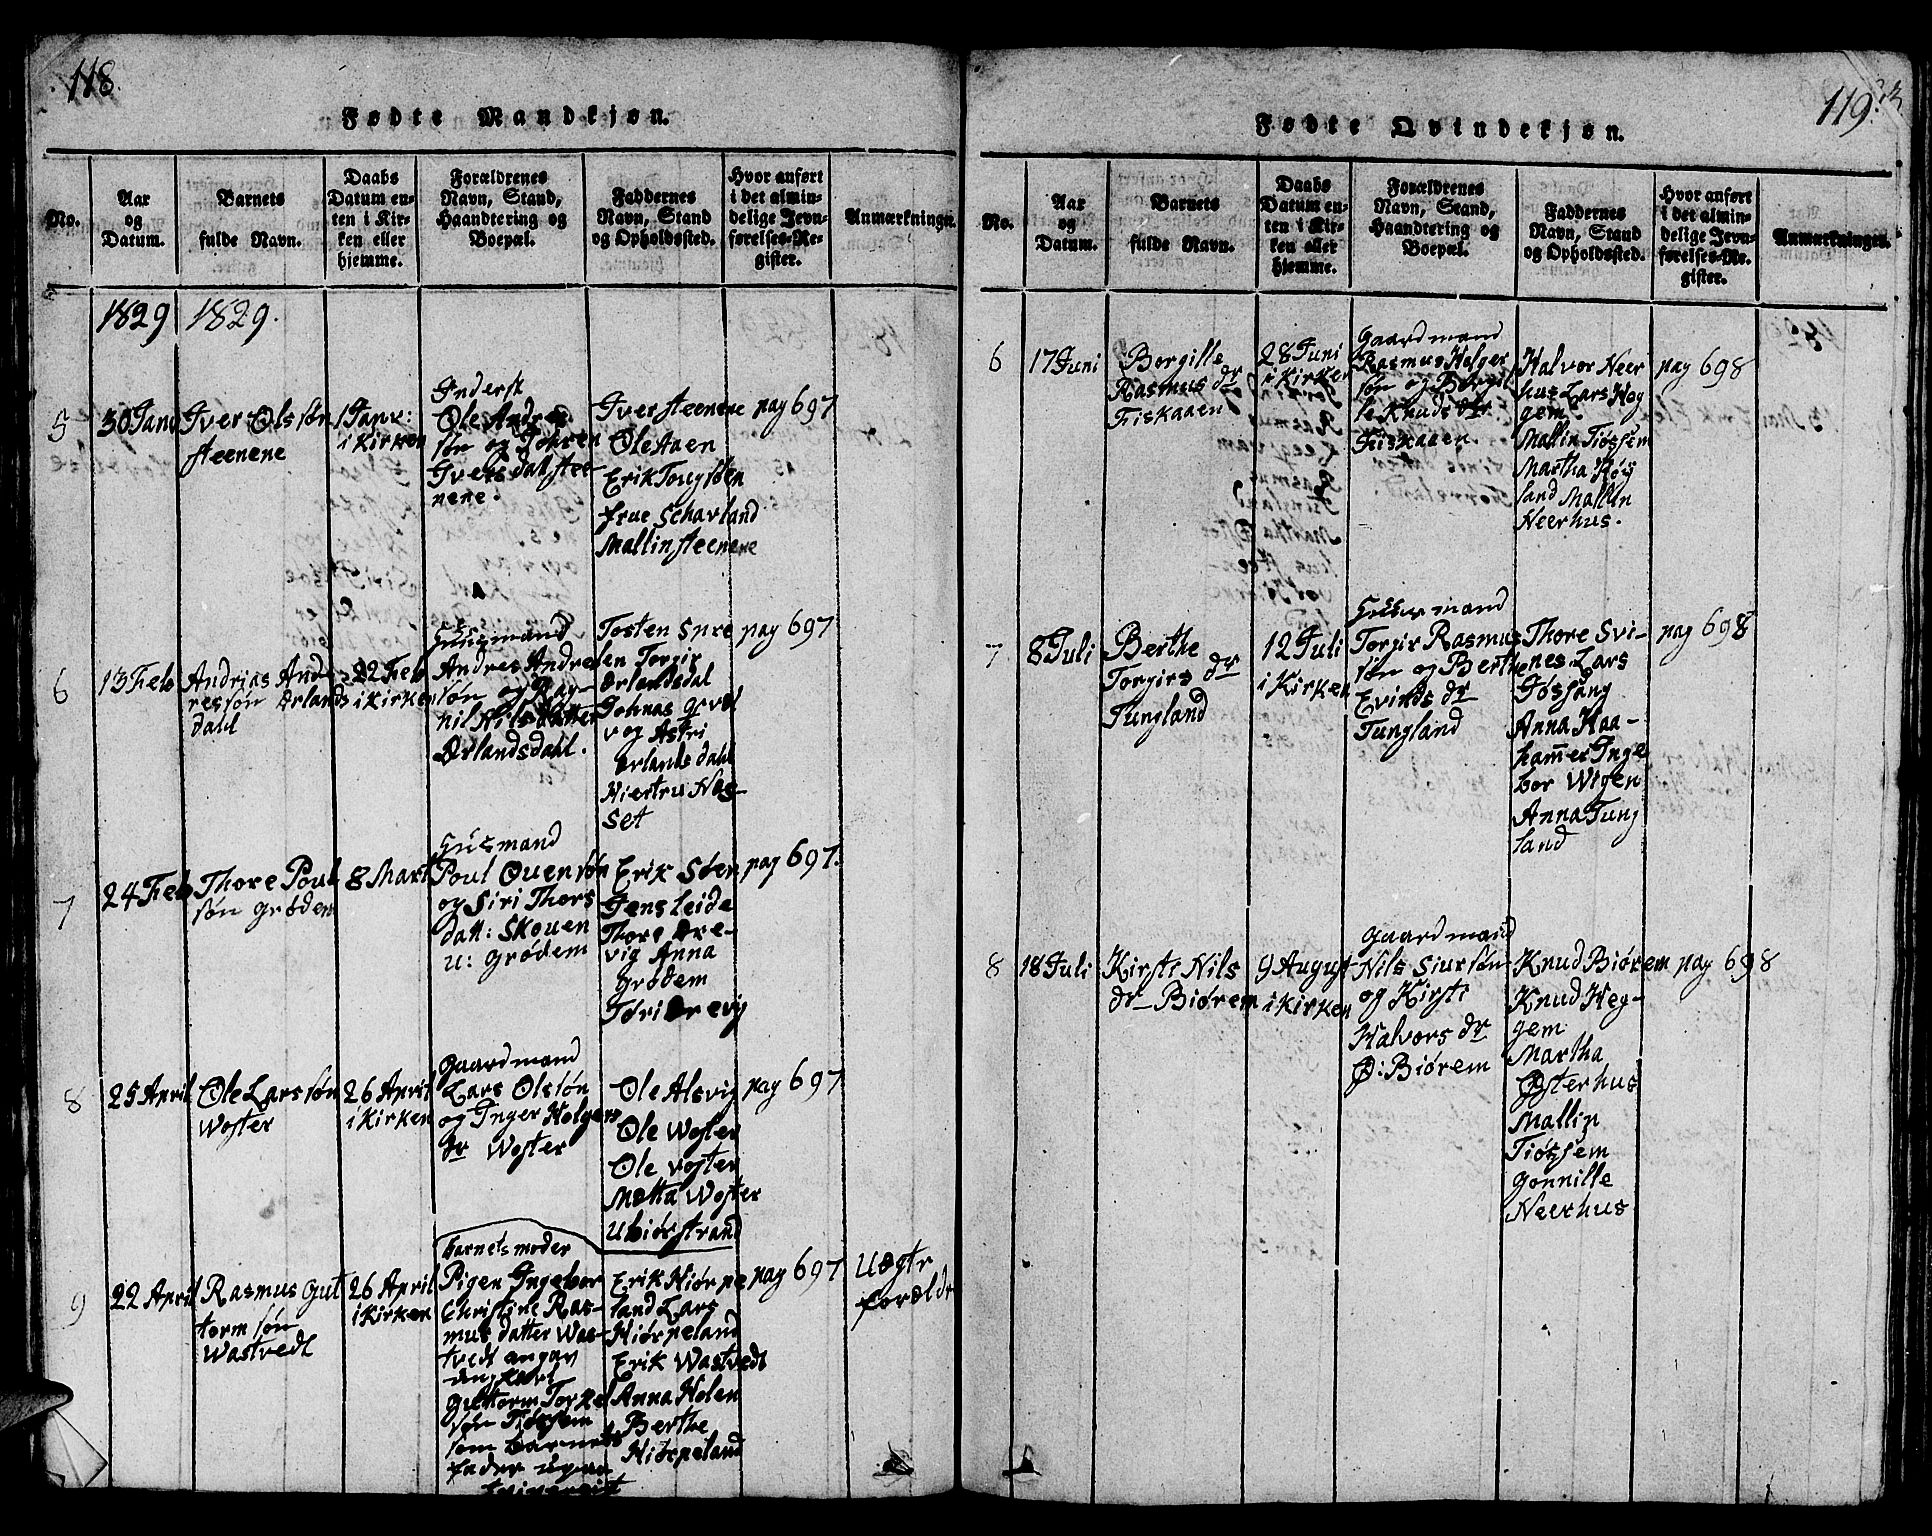 118.
Fødte Mandkjøn.
No.
Aar
og
Datum.
Barnets
fulde Navn.
Daabs
Datum en-
ten i Kir-
ken eller
hjemme.
Forældrenes
Navn, Stand,
Haandtering og
Boepæl.
Faddernes
Navn, Stand
og Opholdssted.
Hvor anført
i det almin-
delige Jevn-
førelses-Re-
gister.
Anmærkninger.
1829
1829.
5
30 Janu
Iver Olssøn
steenene
1 Janv:
i Kirken
Inderst
Ole Andre
søn og Gohren
Ivers datt stee-
nene.
Iver steenene
Ole Aaen
Erik Tougsøen
frue Schavland
Mallin steenene
pag 697
6
13 Feb
Andrias And-
ressøn Ørlands
dahl
22 Feb
i Kirken
Huusmand
Andres Andre
søn og Rag-
nil Nilsdatter
Ørlandsdahl.
Tosten Snre
len Torgir
Ørlandsdal
Johnas
vog Astri
Ørlandsdahl
Niertru Nes-
set
pag 697
7
24 Feb
Thore Poul
søn Grødem
8 Mart
Huusmand
Poul Ouensøn
og Siri Thors
datt: Skouen
u: Grødem
Erik Søen
Jens leide
Thore Dre-
vig Anna
Grødem
Tøri Drevig
pag 697.
8
25 April
Ole Larssøn
Woster
26 April
i Kirken
Gaardmand
Lars Olssøn
og Inger Holgers
dr Woster
Ole Alsvig
Ole Woster
Ole voster
Metta Woster
u biørstrand
pag 697
9
22 April
Rasmus Gut
torm søn
Wastvedt
26 April
i Kirken
Barnets moder
Pigen Ingebor
Christine Ras-
mus datter Was-
tvedt angav
ungkarl
Guttorm Torkel
søn Tiøssem
som barnets
fader ugna

Erik Hiørpe
land Lars
Hiørpeland
Erik Wastvedt
Anna Holen
Berthe
Hiørpeland
pag 697
Uægte
forældr
119.
Fødte Qvindekjøn.
No.
Aar
og
Datum.
Barnets
fulde Navn.
Daabs
Datum en-
ten i Kir-
ken eller
hjemme.
Forældrenes
Navn, Stand,
Haandtering og
Boepæl.
Faddernes
Navn, Stand
og Opholdssted.
Hvor anført
i det almin-
delige Jevn-
førelses-Re-
gister.
Anmærkninger.
6
17 Juni
Borgille
Rasmus dr
Fiskaaen
28 Juni
i Kirken
Gaardmand
Rasmus Holger
søn og Borgil
le Knuds dr
Fiskaaen.
Halvor Neer
hus Lars Heg
gem.
Mallin Tiøssem
Martha Røis
land Mallin
Neerhus.
pag 698
7
8 Juli
Berthe
Torgirs dr
Tungland
12 Juli
i Kirken
Huusmand
Torgir Rasmus
søn og Berthe
Evinds dr
Tungland
Thore Svi-
nes Lars
Jøssang
Anna Haa-
hammer Inge
bor Wigen
Anna Tung
land
pag 698
8
18 Juli
Kirsti Nils
dr Biørem
9 August
i Kirken
Gaardmand
Nils Siursøn
og Kirsti
Halvors dr
Ø: Biørem
Knud Biørem
Knud Heg-
gem
Martha
Østerhus
Mallin
Tiøssem
Gonnille
Neerhus
pag 698